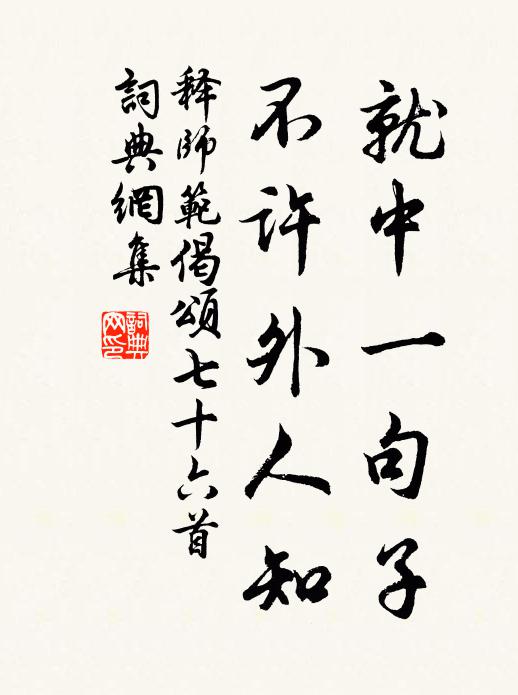 就中一句子
不许外人知
释师範偈頌七十六首
詞典網集
詞典网印